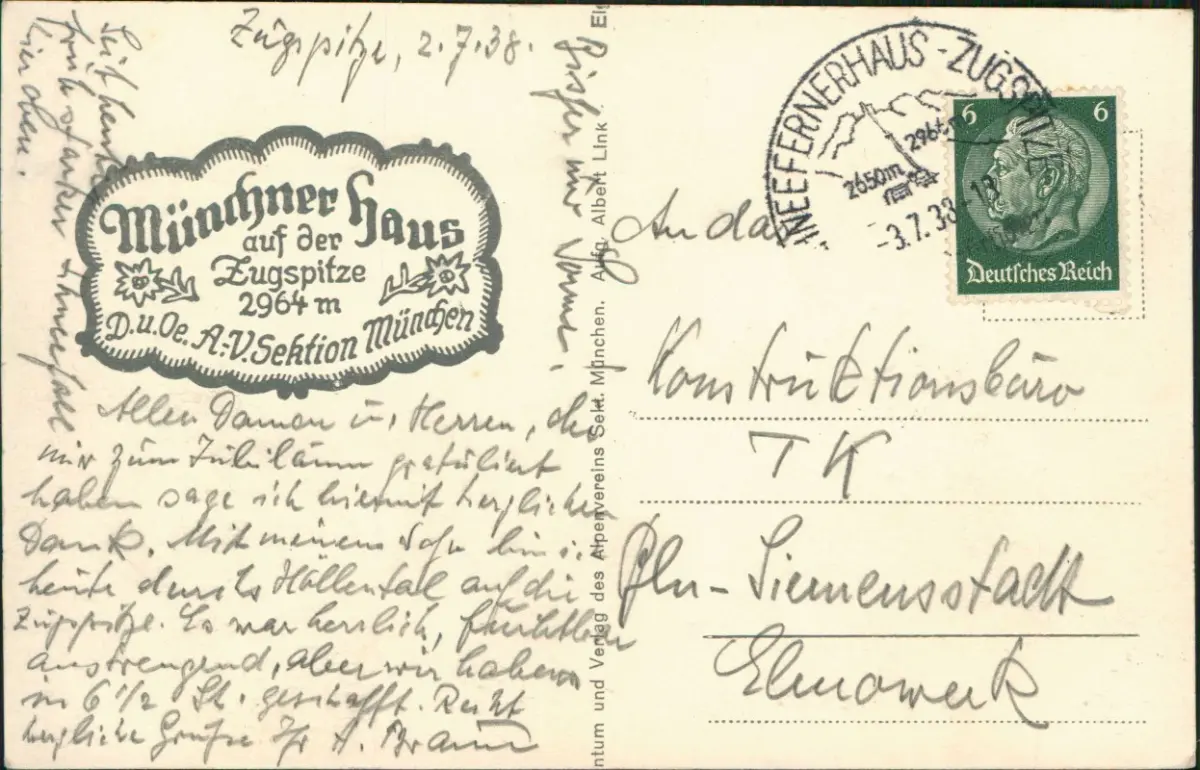 Zugspitze, 2.7.38.
Münchner Haus
auf der
Zugspitze
2964 m
D.u.Oe. A.-V. Sektion München
Allen Damen u. Herren, die
mir zum Jubiläum gratuliert
haben sage ich hiermit herzlichen
Dank. Mit meinem Sohn bin i.
heute durchs Höllental auf die
Zugspitze. Es war herrlich, furchtbar
anstrengend, aber wir haben
in 6 1/2 St. geschafft. Recht
herzliche Grüße Ihr A. Braun
Seit heute
früh starker Schneefall
hier oben.
Bisher nur Sonne.
ntum und Verlag des Alpenvereins Sekt. München. Aufg. Albert Link. Eig
SCHNEEFERNERHAUS - ZUGSPITZE
2964 m
2650m
-3.7.38-13
6 6
Deutsches Reich
An das
Konstruktionsbüro
TK
Bln-Siemensstadt
Elmowerk